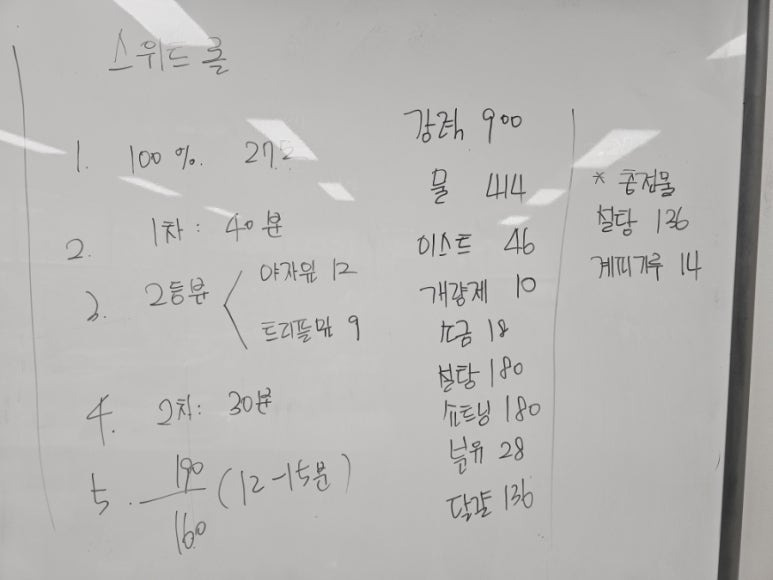 스위트롤
1. 100%. 27도
2. 1차: 40분
3. 2등분
야자잎 12
트리플잎 9
4. 2차: 30분
5. 190/160 (12-15분)
강력 900
물 414
이스트 46
개량제 10
소금 18
설탕 180
쇼트닝 180
분유 28
달걀 136
* 충전물
설탕 136
계피가루 14